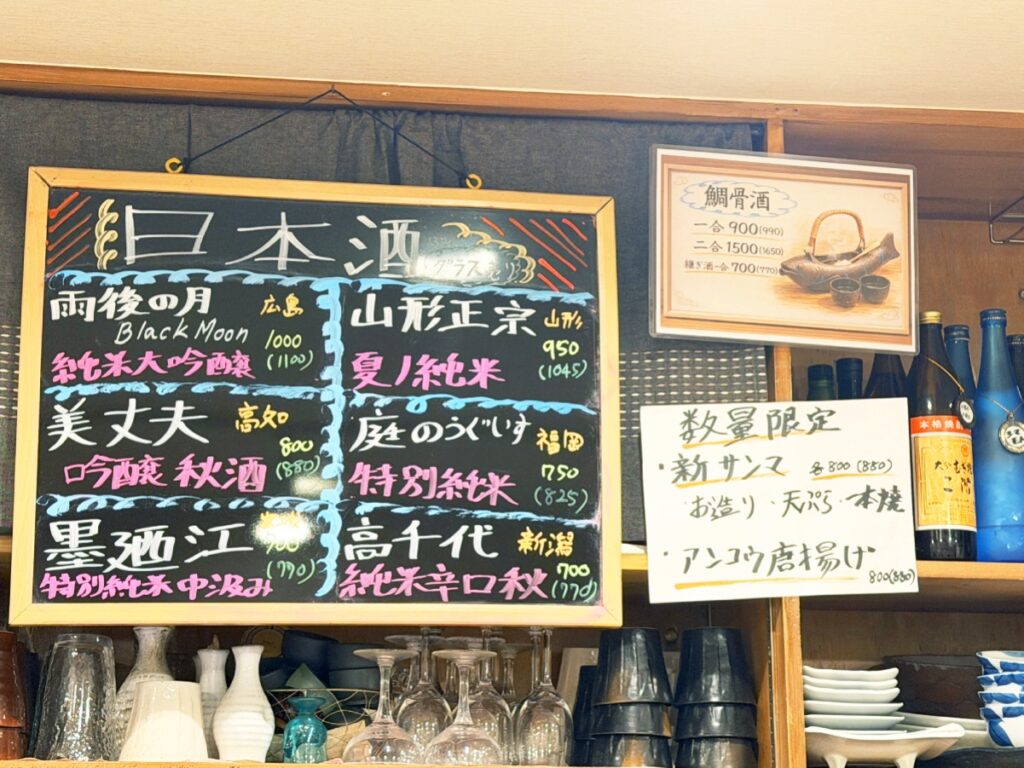 日本酒
グラス
雨後の月 広島
Black Moon 1000
純米大吟醸 (1100)
山形正宗 山形
950
夏ノ純米 (1045)
美丈夫 高知
800
吟醸 秋酒 (880)
庭のうぐいす 福岡
750
特別純米 (825)
墨廼江
700
特別純米 中汲み (770)
高千代 新潟
700
純米辛口秋 (770)
鯛骨酒
一合 900(990)
二合 1500(1650)
継ぎ酒一合 700(770)
数量限定
・新サンマ 各800(880)
・お造り・天ぷら・一本焼
・アンコウ唐揚げ
800(880)
本格焼酎
二階